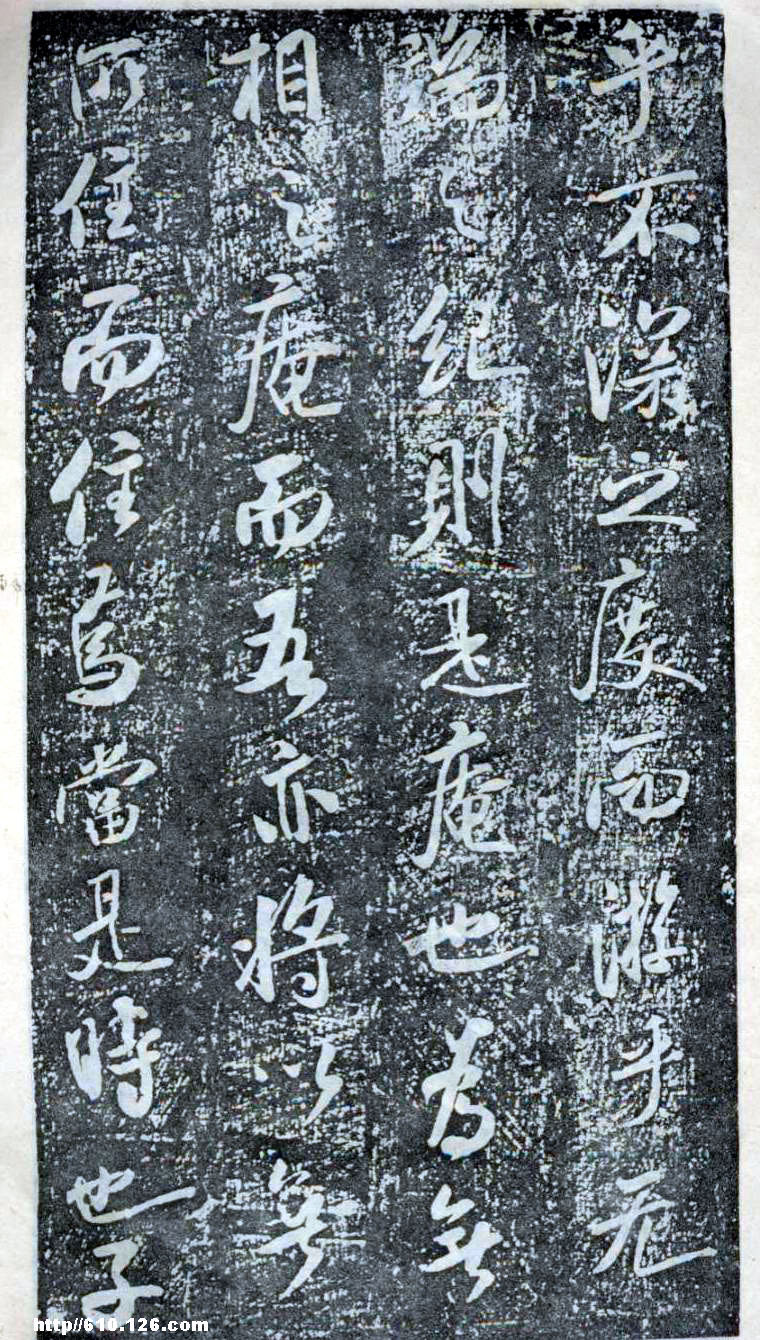 乎不深之度而游乎无
端之紀則是庵也為無
相之庵而吾亦將以無
所住而住焉當是時也子
http//610.126.com